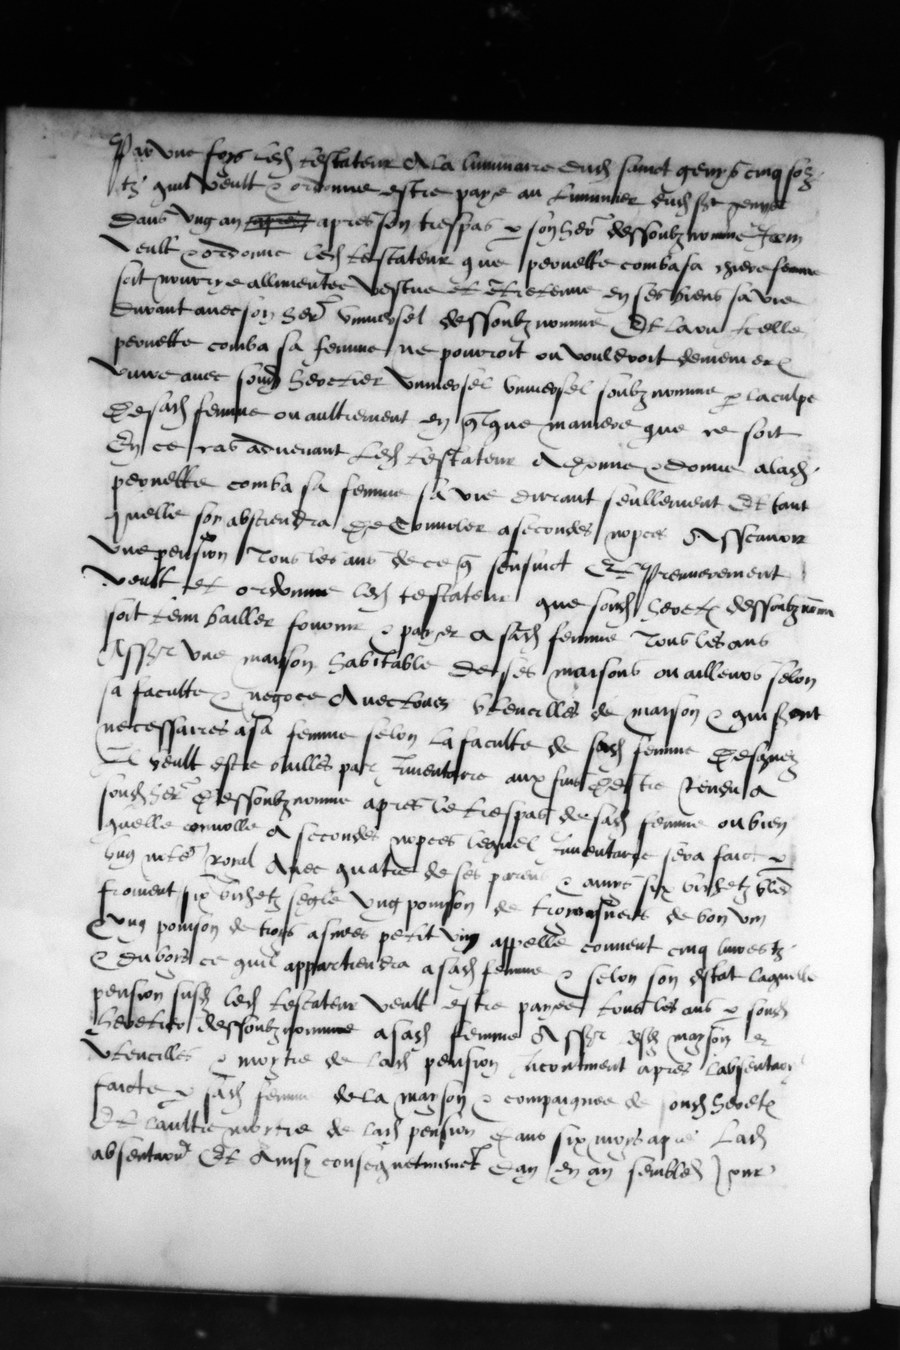 Par une foys led testateur a la luminaire dud sainct genys cinq solz
tz quil veult & ordonne estre paye au luminier dud st genys
dans ung an apres son trespas p son her dessoubz nomme Item
veult & ordonne led testateur que pernette comba sa chiere femme
soit nourrye allimentee vestue et entretenue en ses biens sa vie
durant avec son her universel dessoubz nomme Et la ou icelle
pernette comba sa femme ne pourroit ou vouldroit demeurer &
vivre avec sond heretier universel universel soubz nomme p la culpe
de sad femme ou aultrement en qlque maniere que ce soit
En ce cas advenant led testateur a donne & donne a lad
pernette comba sa femme sa vie durant seullement Et tant
quelle son abstiendra de convoler a secondes nopces Assavoir
une pension tous les ans de ce q sensuict Et Premierement
veult et ordonne led testateur que sond heretr dessoubz nomme
soit tenu bailler fournir & payer a sad femme tous les ans
Assr une maison habitable de ses maisons ou ailleurs selon
sa faculte & negoce avec tous utencilles de maison &
necessaires a sa femme selon la faculte de sad femme desquelz
Il veult estre par Inventaire aux fins destre rendu a
sond her dessoubz nomme apres le trespas de sad femme ou bien
quelle convolle a secondes nopces lequel Inventaire sera faict p
ung notre royal avec quatre de ses parens & amys six bichetz bled
froment six bichetz segle ung poinson de trois asnees de bon vin
& ung poinson de trois asnees petit vin appelle convent cinq livres tz
& du bois ce quil appartiendra a sad femme & selon son estat laquelle
pension susd led testateur veult estre payee tous les ans p sond
heretier dessoubz nomme a sad femme Assr esd mayson et
utencilles & moytie de lad pension incontinent apres labsentaon
faicte p sad femme de la mayson & compaignee de sond heretr
Et laultre moytie de lad pension dans six moys apres lad
absentaon Et ainsy consequetivement dan en an sembled jour